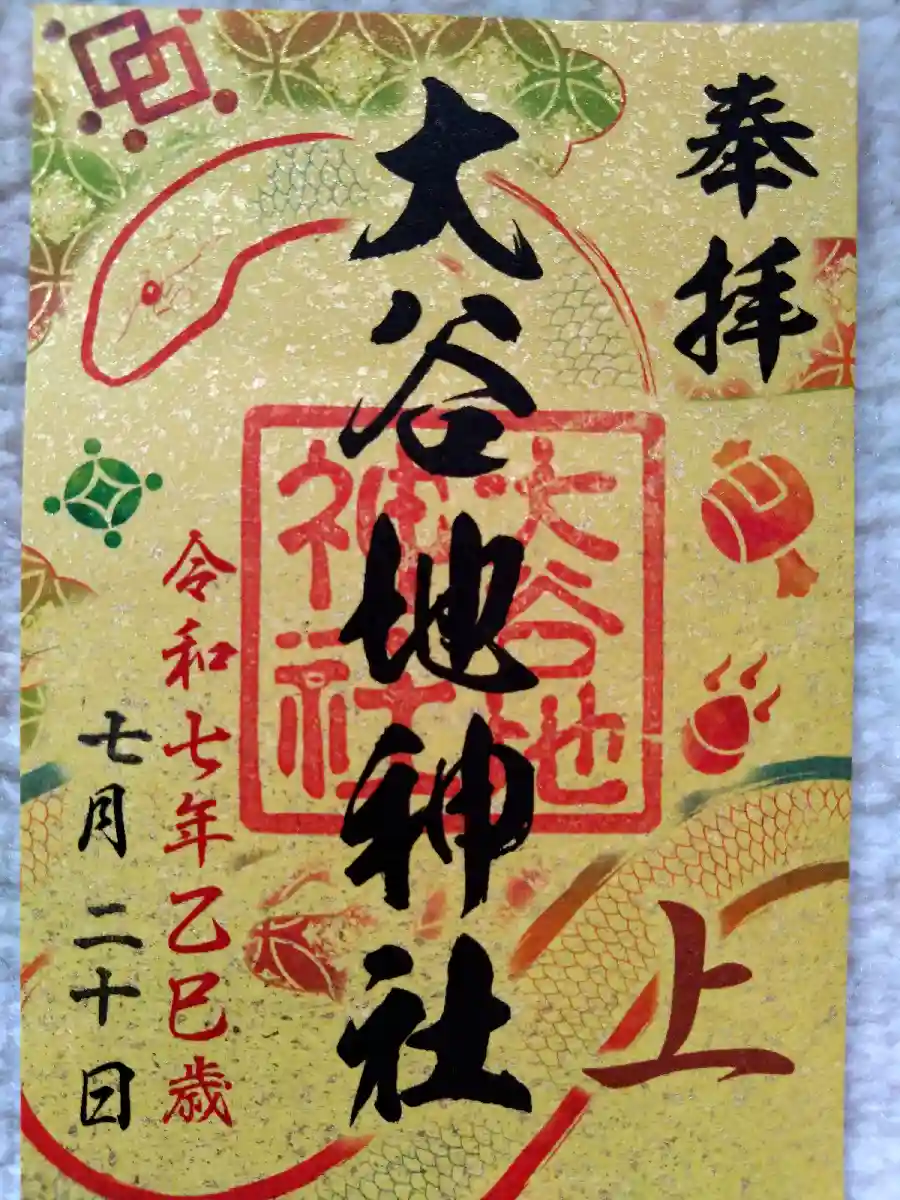 奉拝
上
大谷地神社
大谷地
神社
令和七年乙巳歳
七月二十日